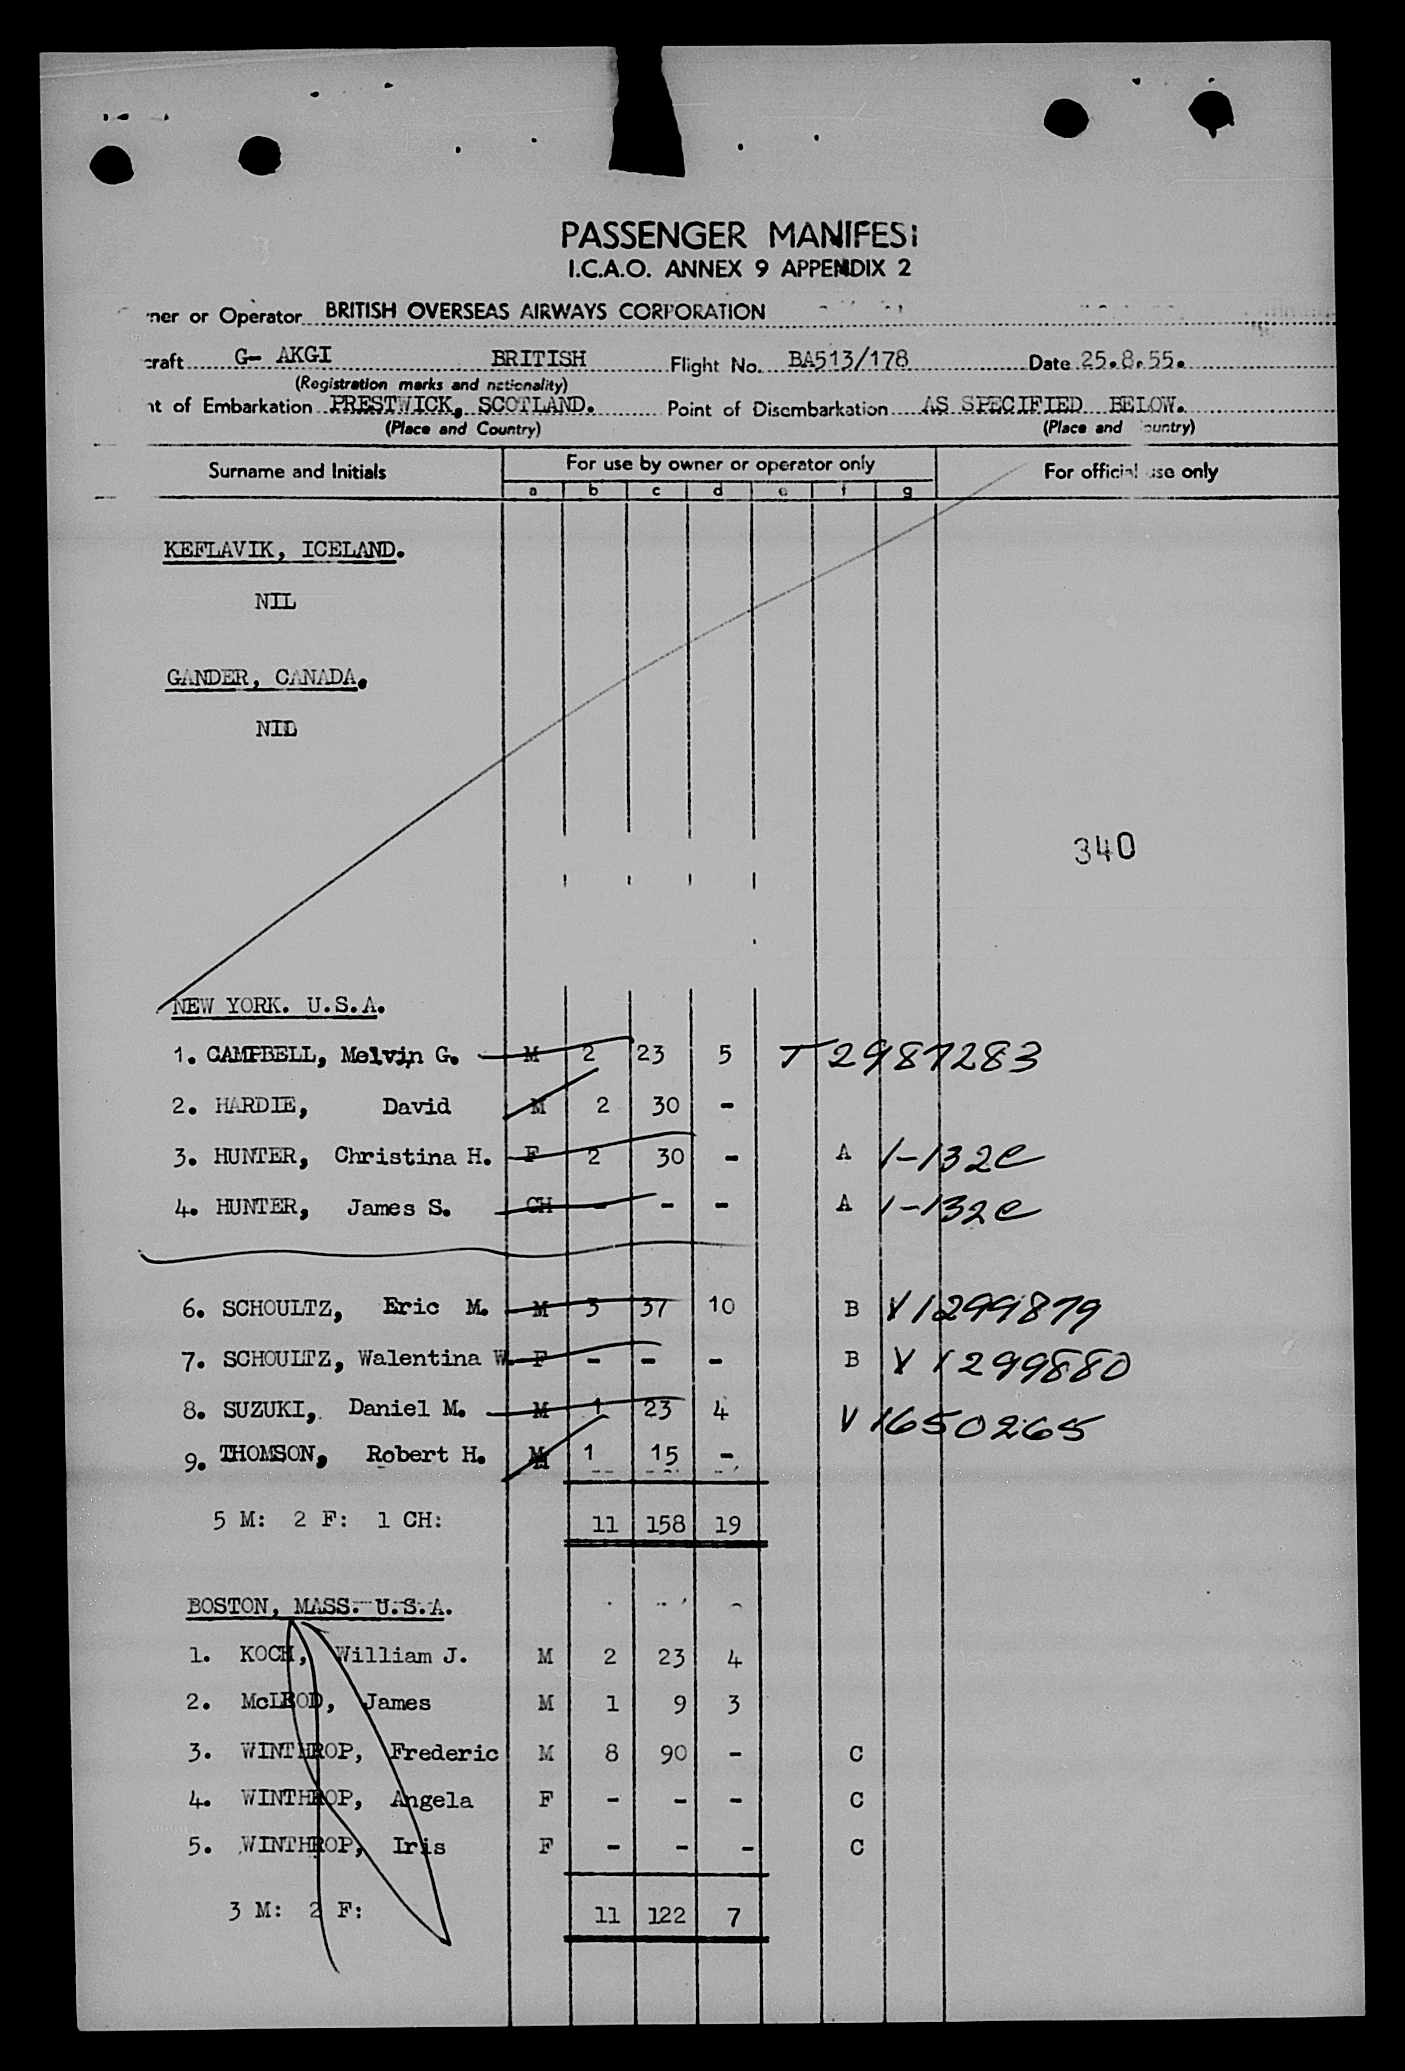 PASSENGER MANIFEST
I.C.A.O. ANNEX 9 APPENDIX 2
ner or Operator BRITISH OVERSEAS AIRWAYS CORPORATION
craft G- AKGI BRITISH Flight No. BA513/178 Date 25.8.55.
(Registration marks and nationality)
nt of Embarkation PRESTWICK, SCOTLAND. Point of Disembarkation AS SPECIFIED BELOW.
(Place and Country) (Place and Country)
Surname and Initials For use by owner or operator only For official use only
a b c d e f g
KEFLAVIK, ICELAND.
NIL
GANDER, CANADA.
NIL
340
NEW YORK. U.S.A.
1. CAMPBELL, Melvin G. M 2 23 5 T 2987283
2. HARDIE, David M 2 30 -
3. HUNTER, Christina H. F 2 30 - A 1-132c
4. HUNTER, James S. CH - - - A 1-132c
6. SCHOULTZ, Eric M. M 3 37 10 B V1299879
7. SCHOULTZ, Walentina W. F - - - B V1299880
8. SUZUKI, Daniel M. M 1 23 4 V1650265
9. THOMSON, Robert H. M 1 15 -
5 M: 2 F: 1 CH: 11 158 19
BOSTON, MASS. U.S.A.
1. KOCH, William J. M 2 23 4
2. McLEOD, James M 1 9 3
3. WINTHROP, Frederic M 8 90 - C
4. WINTHROP, Angela F - - - C
5. WINTHROP, Iris F - - - C
3 M: 2 F: 11 122 7